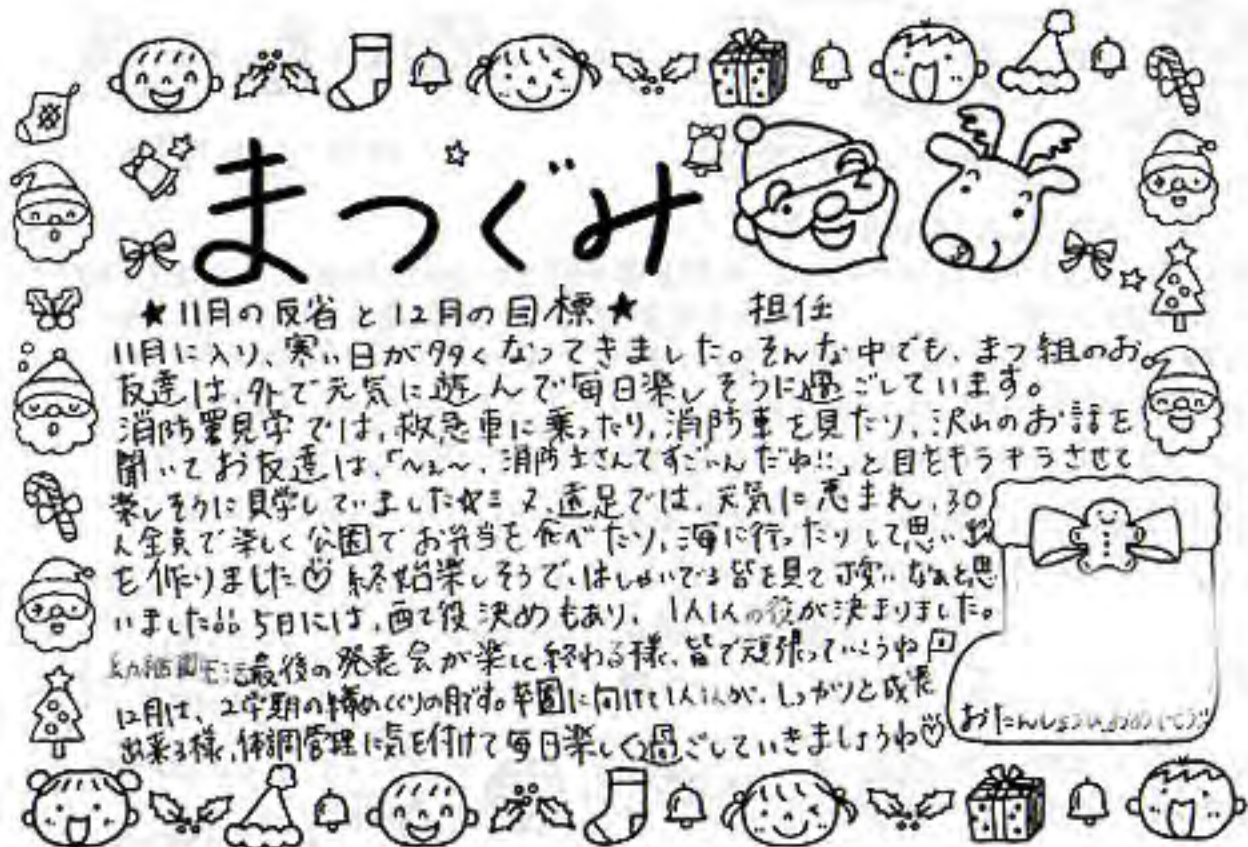 まつぐみ
★11月の反省と12月の目標★ 担任
11月に入り、寒い日が多くなってきました。そんな中でも、まつ組のお
友達は、外で元気に遊んで毎日楽しそうに過ごしています。
消防署見学では、救急車に乗ったり、消防車を見たり、沢山のお話を
聞いてお友達は、「へぇ〜、消防士さんてすごいんだね!!」と目をキラキラさせて
楽しそうに見学していました 又、遠足では、天気に恵まれ、30
人全員で楽しく公園でお弁当を食べたり、海に行ったりして思い出
を作りました♡ 終始楽しそうで、はしゃいでる皆を見て可愛いなぁと思
いました 5日には、劇で役決めもあり、1人1人の役が決まりました。
幼稚園生活最後の発表会が楽しく終わる様、皆で頑張っていこうね
12月は、2学期の締めくくりの月です。卒園に向けて1人1人が、しっかりと成長
出来る様、体調管理に気を付けて毎日楽しく過ごしていきましょうね♡
おたんじょうびおめでとう